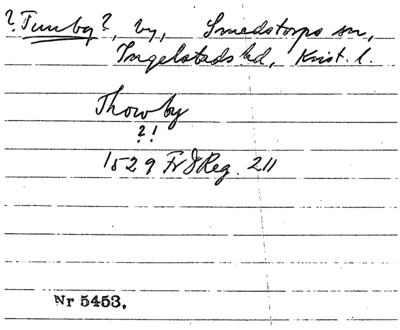 ? Tunby ?, by, Smedstorps sn,
Ingelstads hd, Krist. l.
Thowby
?!
1529 FrJReg. 211
Nr 5453.